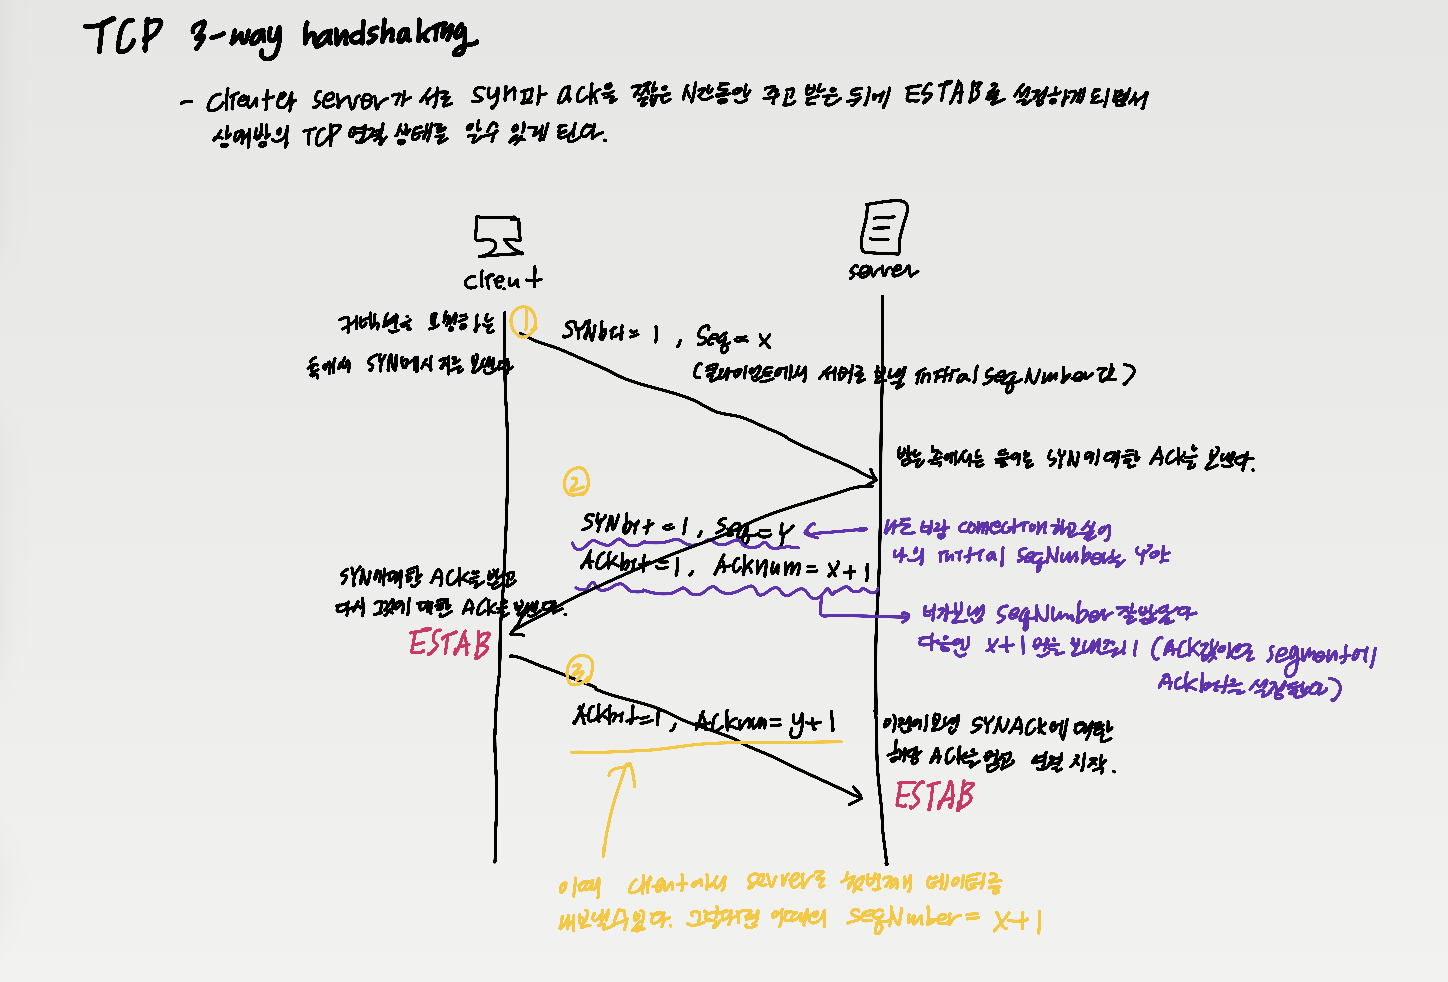 TCP 3-way handshaking
- client와 server가 서로 syn과 ack을 짧은 시간동안 주고 받은 뒤에 ESTAB로 설정하게 되면서
상대방의 TCP 연결 상태를 알수 있게 된다.
client
server
커넥션을 요청하는
쪽에서 SYN메시지를 보낸다
①
SYNbit = 1, Seq = x
(클라이언트에서 서버로 보낼 initial seqNumber다)
받는쪽에서는 SYN에 대한 ACK을 보낸다.
②
SYNbit = 1, Seq = y
ACKbit = 1, ACKnum = x+1
나도 너랑 connection하고싶어
나의 initial seqNumber는 y야
SYN에대한 ACK을 받고
다시 그것에 대한 ACK을 보낸다.
ESTAB
니가보낸 seqNumber 잘받았다
다음엔 x+1 보내줘!! (ACK값이므로 segment에
ACKbit는 설정된다)
③
ACKbit=1, ACKnum = y+1
이전에보낸 SYNACK에 대한
해당 ACK을 받고 연결 시작.
ESTAB
이때 client에서 server로 첫번째 데이터를
내보낼수있다. 그렇다면 이때의 seqNumber = x+1